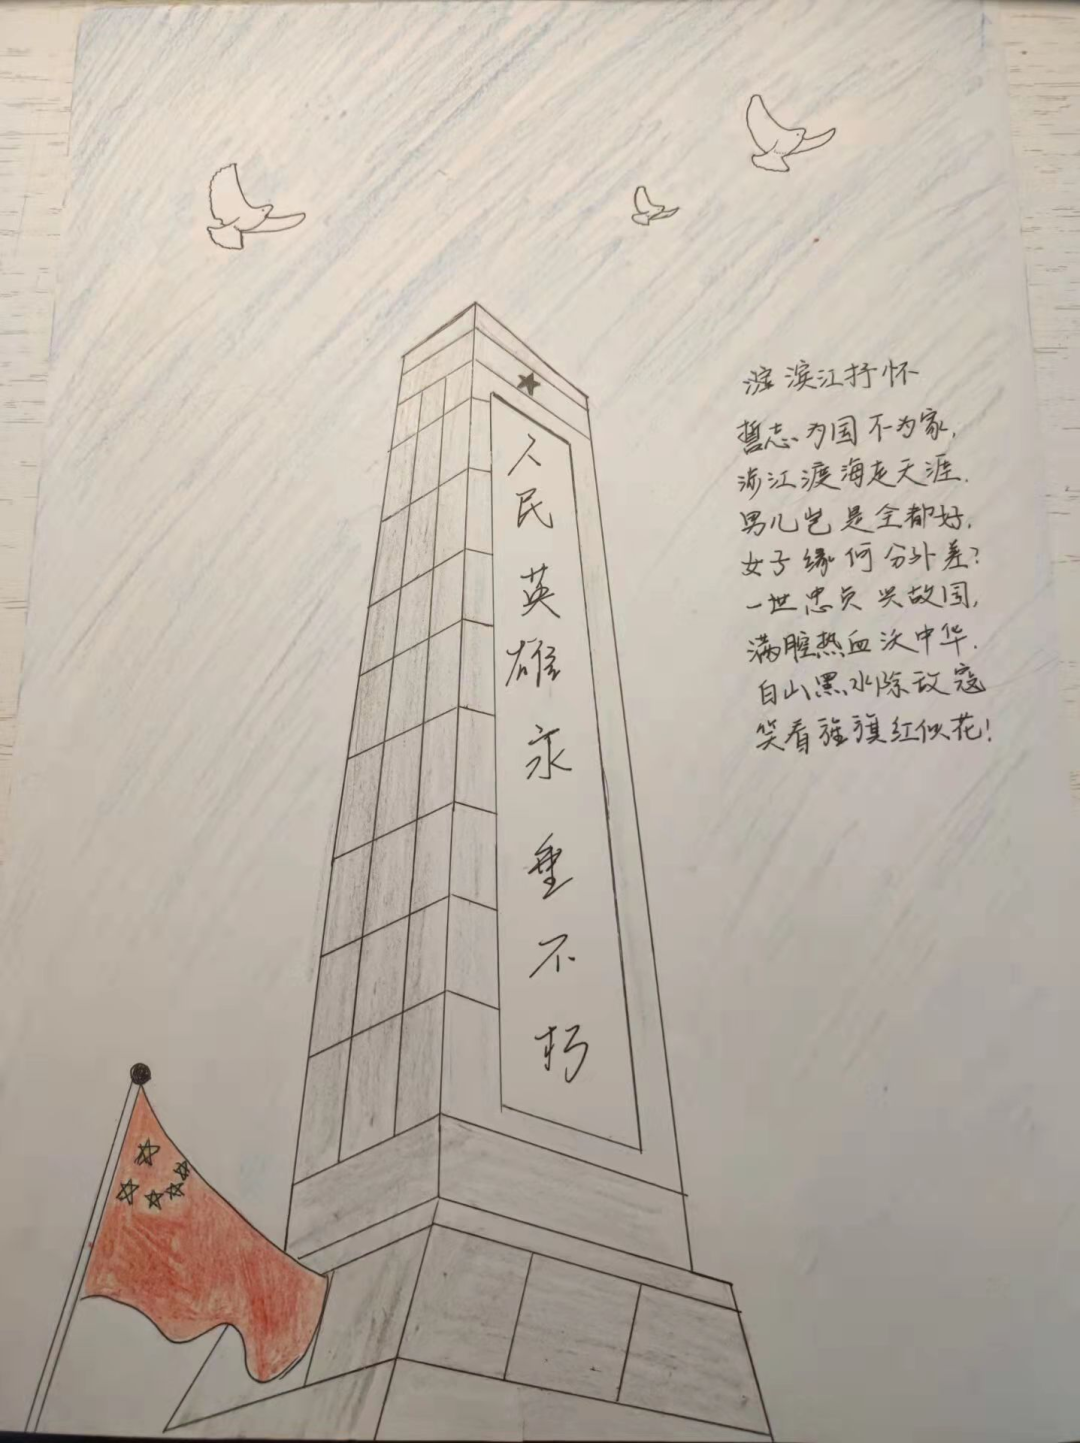 人民英雄永垂不朽
滨江抒怀
誓志为国不为家,
涉江渡海走天涯.
男儿岂是全都好,
女子缘何分外差?
一世忠贞兴故国,
满腔热血沃中华.
白山黑水除敌寇
笑看旌旗红似花!